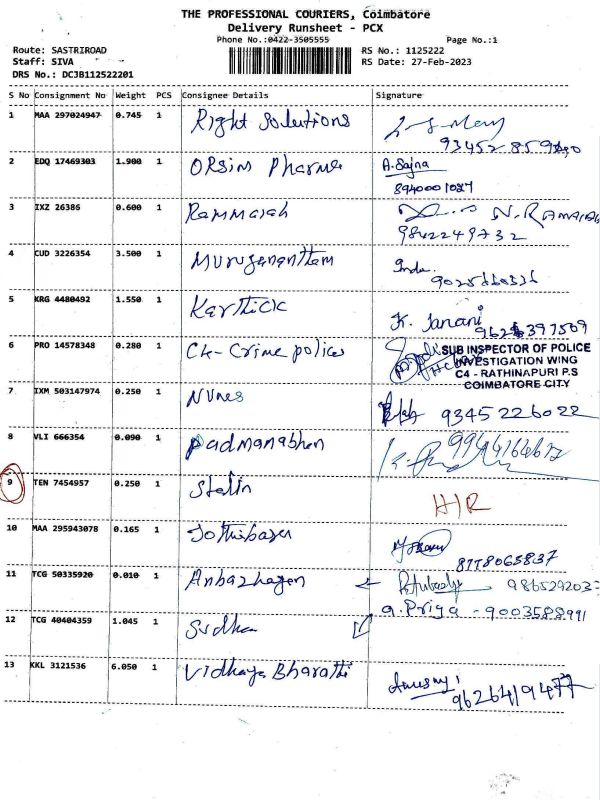 THE PROFESSIONAL COURIERS, Coimbatore
Delivery Runsheet - PCX
Phone No.:0422-3505555
Page No.:1
Route: SASTRIROAD
RS No.: 1125222
Staff: SIVA
RS Date: 27-Feb-2023
DRS No.: DC3B112522201
S No Consignment No Weight PCS Consignee Details Signature
1 MAA 297024947 0.745 1 Right Solutions
2 EDQ 17469303 1.900 1 Orsim Pharma A. Sajna
8940001087
3 IXZ 26386 0.600 1 Rammaiah N. RAMAIAH
9842249732
4 CUD 3226354 3.500 1 Muruganantham Indu
5 KRG 4480492 1.550 1 Karthick K. Janani
6 PRO 14578348 0.280 1 C4-Crime polices
SUB INSPECTOR OF POLICE
INVESTIGATION WING
C4 - RATHINAPURI P.S
COIMBATORE CITY
7 IXM 503147974 0.250 1 9345226022
8 VLI 666354 0.090 1 Padmanabhan
9 TEN 7454957 0.250 1 Stalin H/R
10 MAA 295943078 0.165 1 Jothibasen
8778065837
11 TCG 50335920 0.010 1 Anbazhagen
12 TCG 40404359 1.045 1 Sudha a. Priya - 9003588991
13 KKL 3121536 6.050 1 Vidhaya Bharathi
9626419477